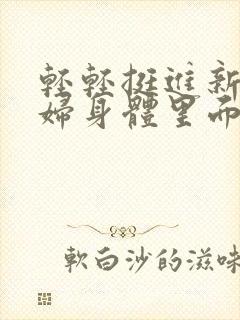 輕輕挺進新
婦身體里而
軟白沙的滋味